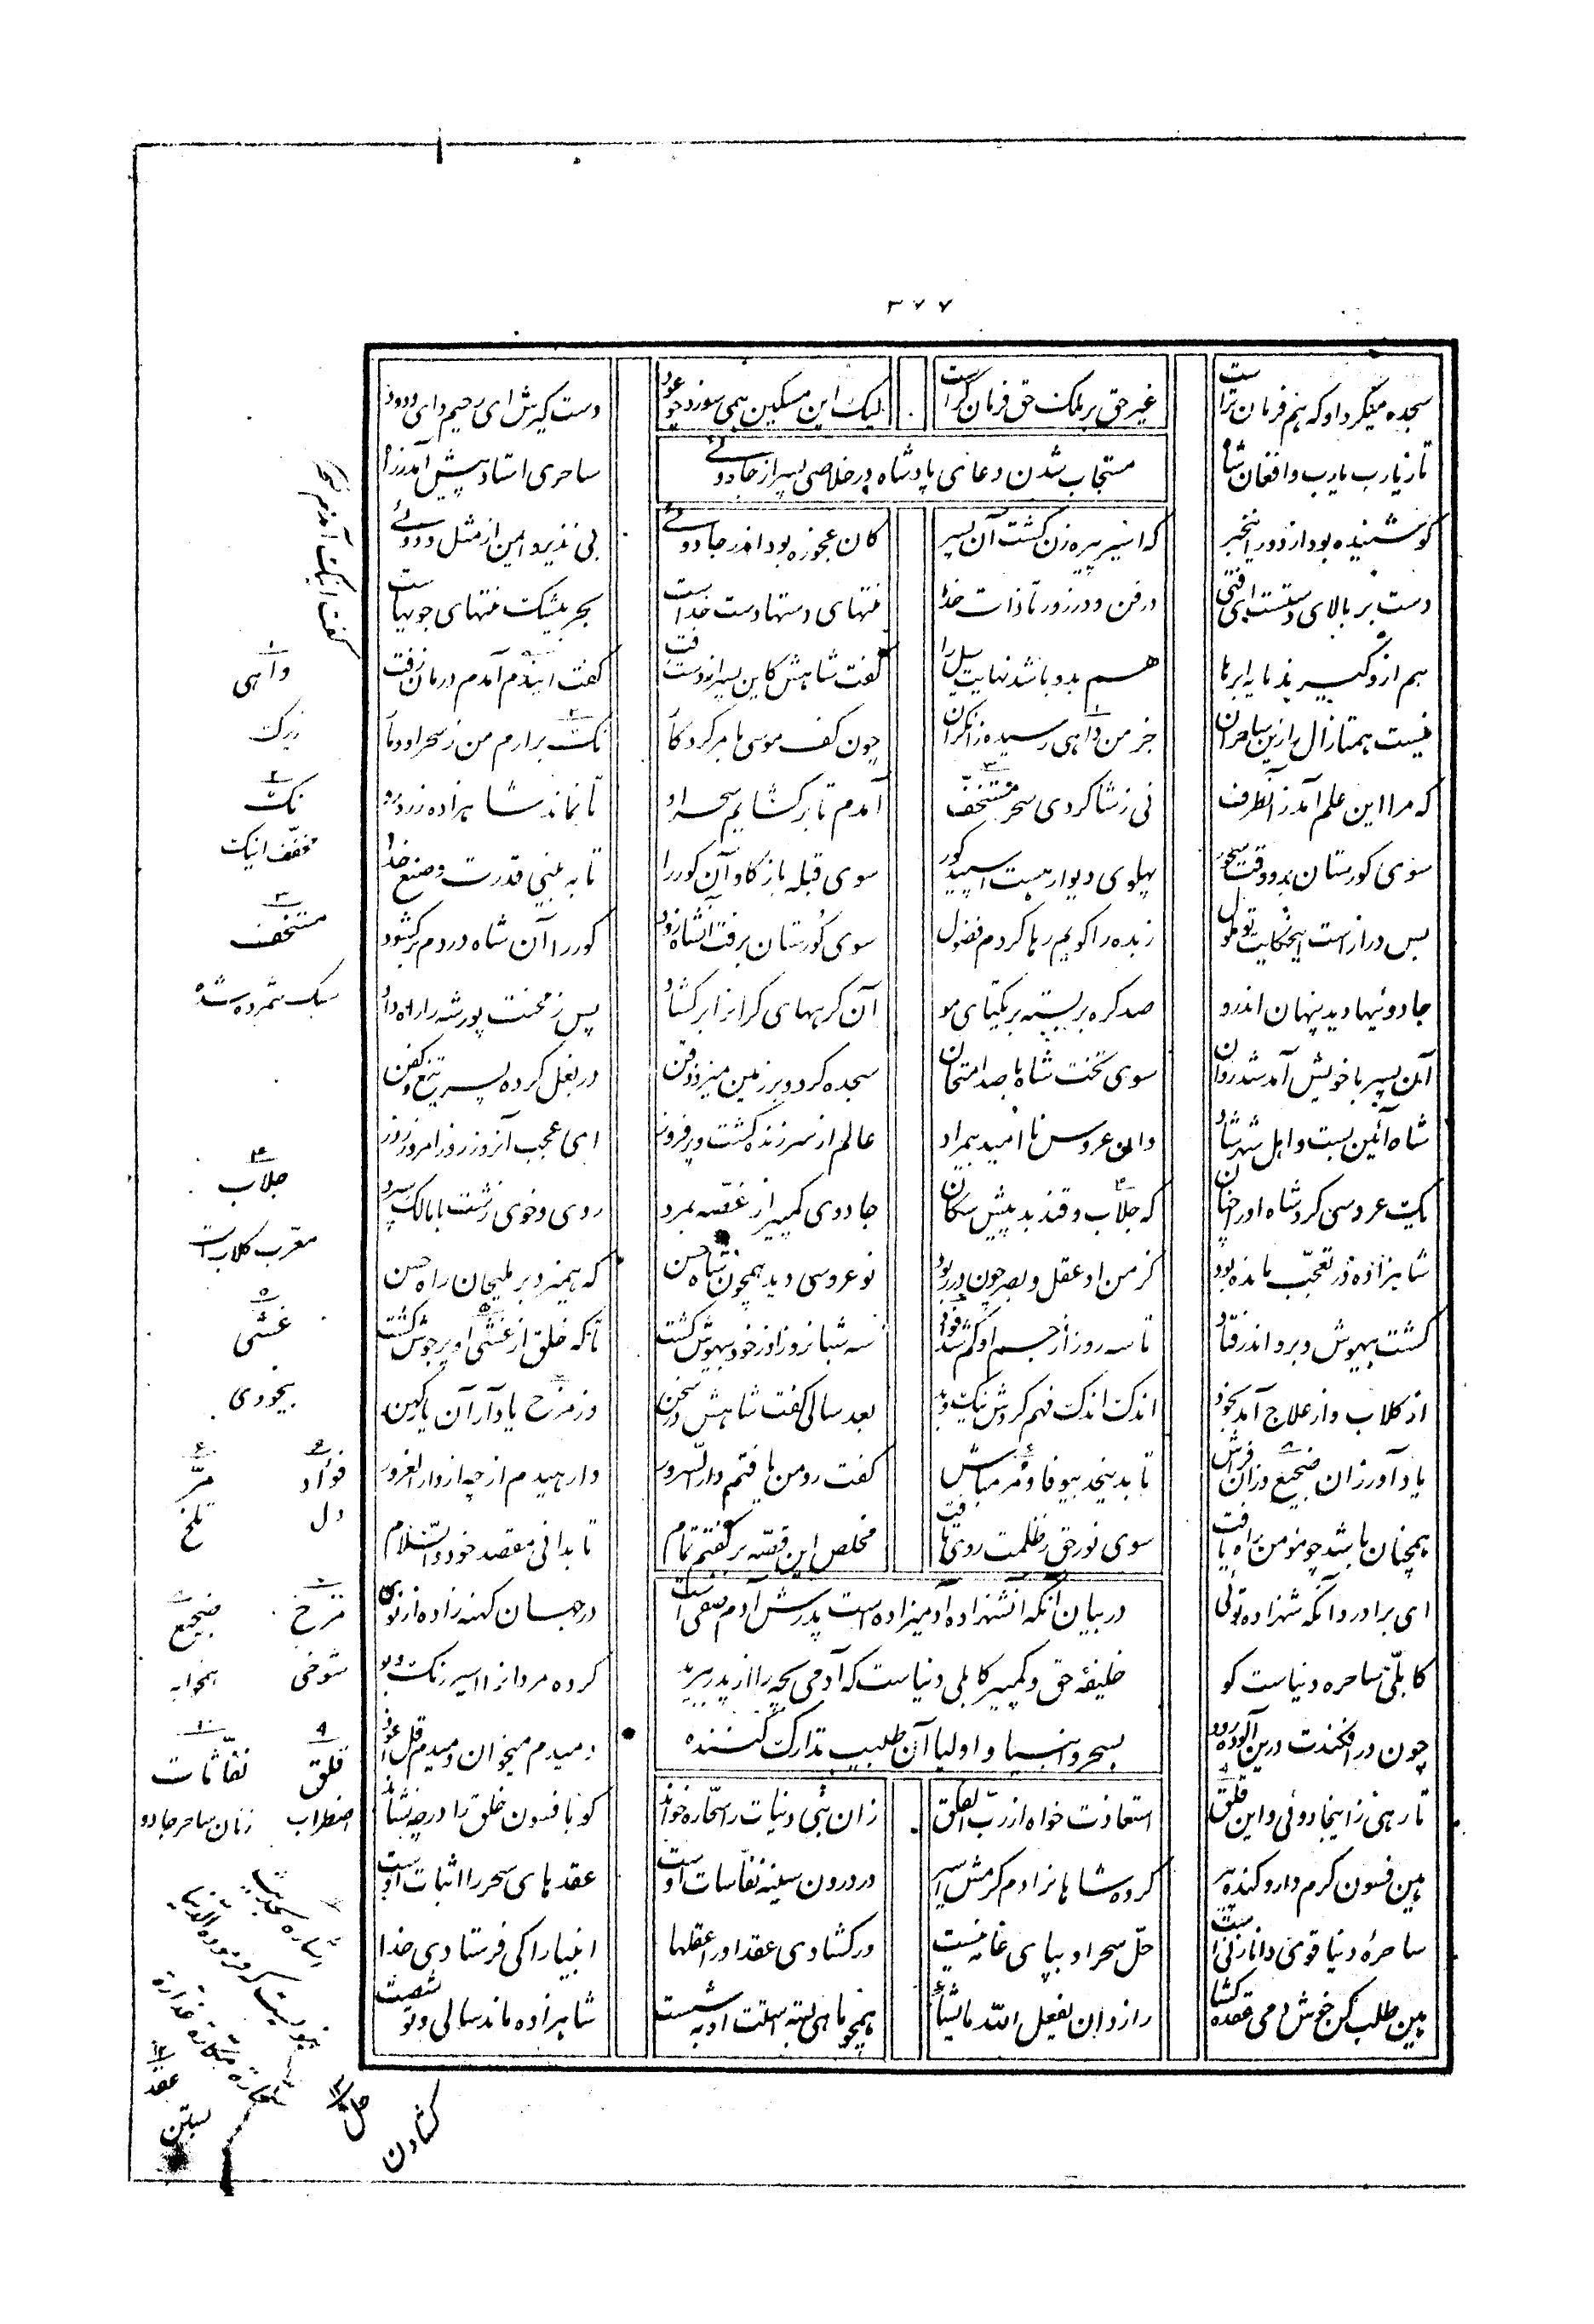 ۳۷۷
سجده میکرد او که هم فرمان تراست غیر حق بر ملک حق فرمان کراست لیک این مسکین همی سوزد چو عود دست گیرش ای رحیم و ای ودود
تا ز یارب یارب و افغان شاه ساحری استاد پیش آمد ز راه
مستجاب شدن دعای پادشاه در خلاصی پسر از جادوئی
کو شنیده بود از دور این خبر که اسیر پیره زن گشت آن پسر کان عجوزه بود اندر جادوئی بی نذیر و امین از مثل و دوئی
دست بر بالای دستست ای فتی در فن و در زور تا ذات خدا منتهای دستها دست خداست بحر بیشک منتهای جویهاست
هم ازو گیرند مایه ابرها هم بدو باشد نهایت سیل را گفت شاهش کاین پسر از دست رفت گفت اینک آمدم درمان زفت
نیست همتا زال را زین ساحران جز من داهی رسیده زانکران چون کف موسی بامر کردگار نک برارم من ز سحر او دمار
که مرا این علم آمد زآنطرف نی ز شاگردی سحر مستخف آمدم تا بر گشایم سحر او تا نماند شاهزاده زرد رو
سوی گورستان برو وقت سحور پهلوی دیوار هست اسپید گور سوی قبله باز کاو آن گور را تا به بینی قدرت و صنع خدا
بس دراز است این حکایت تو ملول زبده را گویم رها کردم فضول سوی گورستان برفت آنشاه زود گور را آن شاه در دم بر گشود
جادوئیها دید پنهان اندرو صد گره بر بسته بر یکتای مو آن گرههای گرانرا بر گشاد پس ز محنت پور شه را راه داد
آن پسر با خویش آمد شد روان سوی تخت شاه با صد امتحان سجده کرد و بر زمین میزد ذقن در بغل کرده پسر تیغ و کفن
شاه آئین بست و اهل شهر شاد وان عروس نا امید بیمراد عالم از سر زنده گشت و پر فروز ای عجب آنروز روز امروز روز
یک عروسی کرد شاه او را چنان که جلاب و قند بد پیش سگان جادوی کمپیر از غصه بمرد روی و خوی زشت با مالک سپرد
شاهزاده در تعجب مانده بود کز من او عقل و بصر چون در ربود نو عروسی دید همچون شاه حسن که همیزد بر ملیحان راه حسن
گشت بیهوش و برو اندر فتاد تا سه روز از جسم او گم شد فؤاد سه شبانروز او ز خود بیهوش گشت تا که خلق از غشی او پر جوش گشت
از گلاب و از علاج آمد بخود اندک اندک فهم کردش نیک و بد بعد سالی گفت شاهش در سخن در مزح یاد آر آن یار کهن
یاد آور زان ضجیع و زان فراش تا بدینحد بیوفا و مر مباش گفت رو من یافتم دار السرور وا رهیدم از چه از دار الغرور
همچنان باشد چو مومن راه یافت سوی نور حق ز ظلمت روی تافت مخلص این قصه بر گفتم تمام تا بدانی مقصد خود والسلام
در بیان آنکه آنشهزاده آدمیزاده است پدرش آدم صفی است
خلیفهٔ حق و کمپیر کابلی دنیاست که آدمی بچه را از پدر ببرید
بسحر و انبیا و اولیا آن طبیب تدارک کننده
ای برادر دانکه شهزاده توئی در جهان کهنه زاده از نوی
کابلی ساحره دنیاست کو کرده مردانرا اسیر رنگ و بو
چون در افکندت درین آلوده رود دمبدم میخوان و میدم قل اعوذ
تا رهی زاینجادوئی و این قلق استعاذت خواه از رب الفلق زان نبی دنیات را سحاره خواند کو بافسون خلق را در چه نشاند
هین فسون گرم دارد گنده پیر کرده شاهانرا دم گرمش اسیر در درون سینه نفاثات اوست عقدهای سحر را اثبات اوست
ساحرهٔ دنیا قوی دانا زنی است حل سحر او بپای عامه نیست ور گشادی عقد او را عقلها انبیا را کی فرستادی خدا
هین طلب کن خوش دمی عقده گشا راز دان یفعل الله ما یشا همچو ماهی بسته استت او به شست شاهزاده ماند سالی و تو شصت
۱ داهی
زیرک
۲ نک
مخفف اینک
۳ مستخف
سبک شمرده شده
۴ جلاب
معرب گلاب است
۵ غشی
بیخودی
فؤاد
دل
۶ مر
تلخ
مزح
شوخی
۸ ضجیع
همخوابه
۹ قلق
اضطراب
۱۰ نفاثات
زنان ساحر جادو
حل
گشادن
۱۲ عقد
بستن